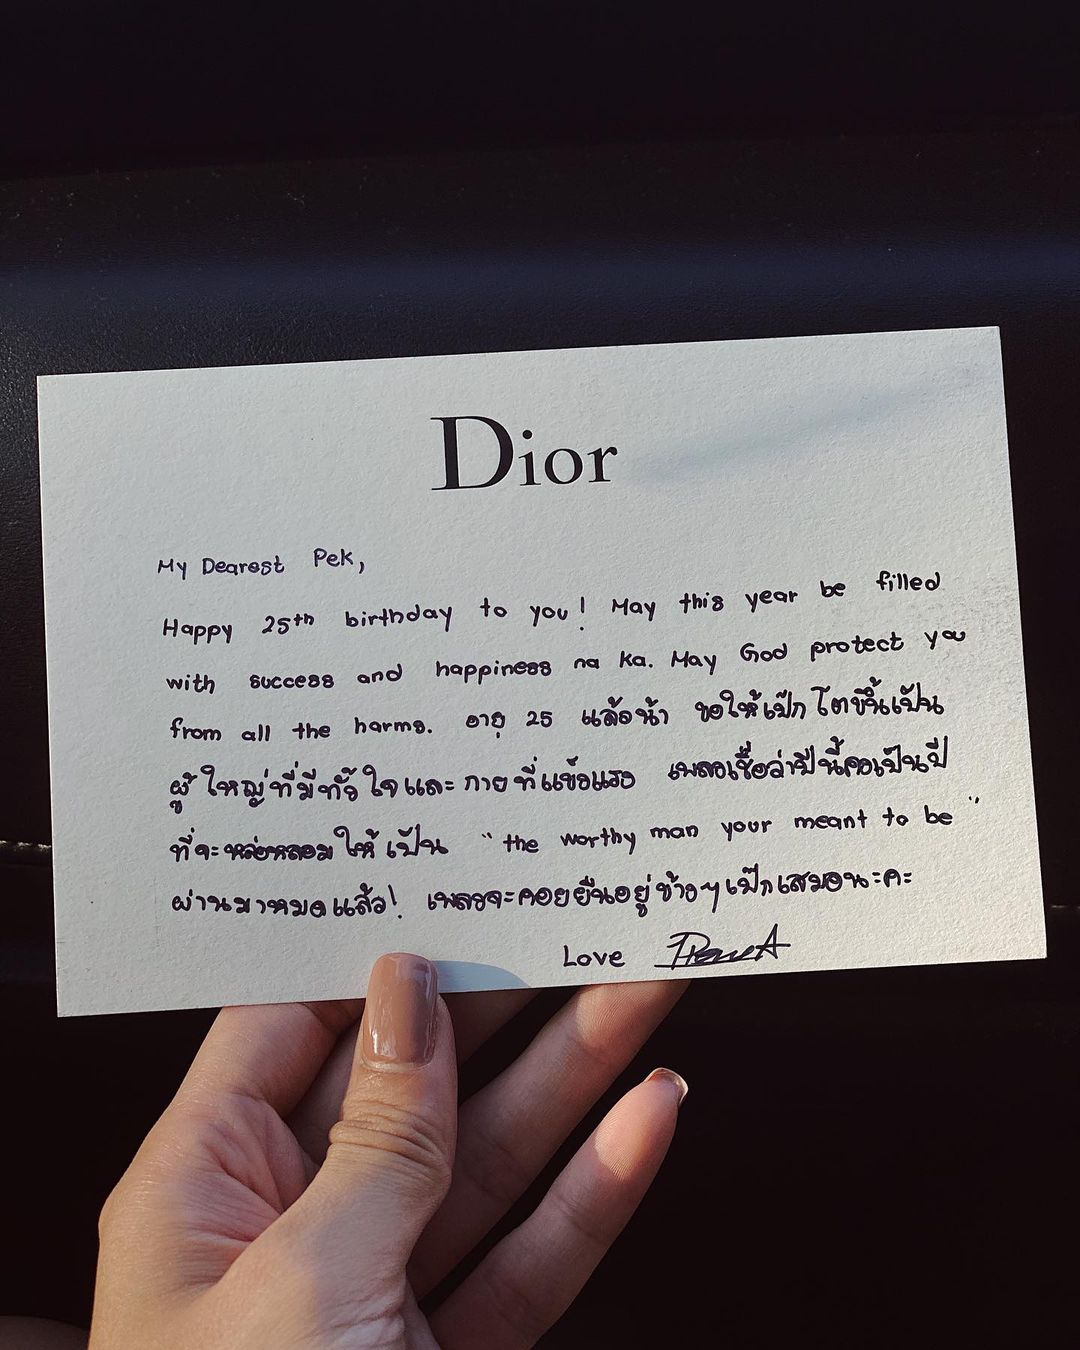 Dior
My Dearest Pek,
Happy 25th birthday to you! May this year be filled
with success and happiness na ka. May God protect you
from all the harms. อายุ 25 แล้วน้า ขอให้เป๊ก โตขึ้นเป็น
ผู้ใหญ่ที่มีทั้งใจและกายที่แข็งแรง เพลงเชื่อว่าปีนี้คงเป็นปี
ที่จะหล่อหลอมให้เป็น "the worthy man your meant to be"
ผ่านมาหมดแล้ว! เพลงจะคอยยืนอยู่ข้างๆเป๊กเสมอนะคะ
Love